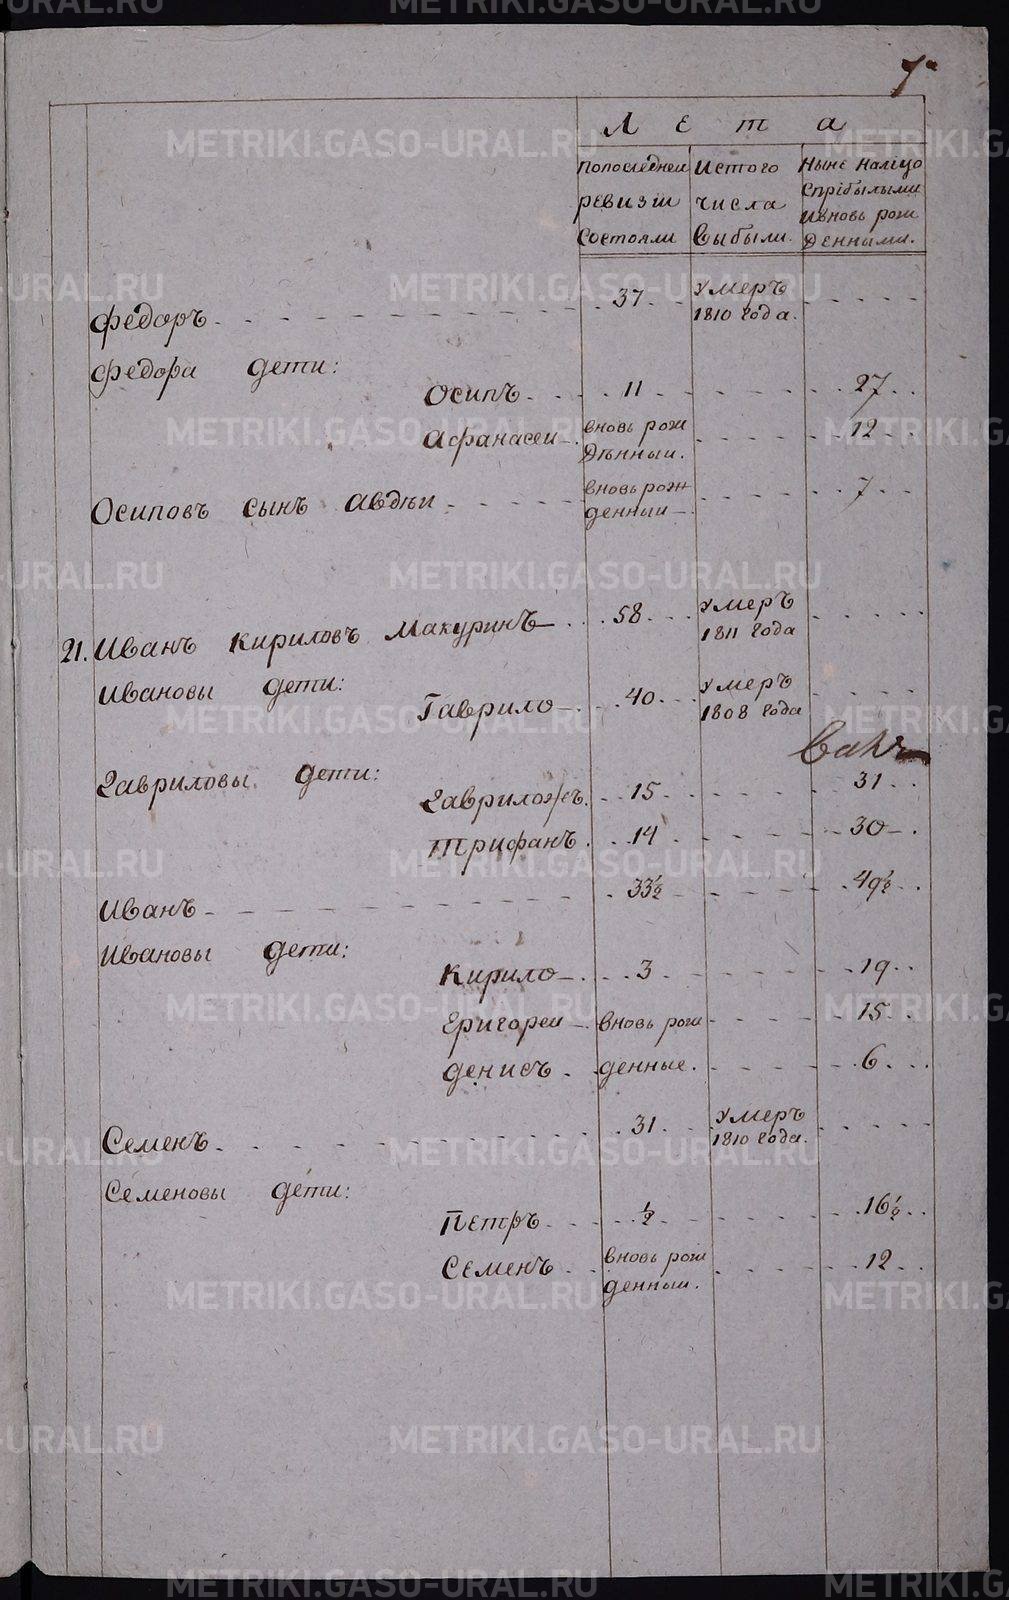 7
Лета
По последней ревизии состояли
Ис того числа выбыли.
Ныне налицо с прибылыми и вновь рожденными.
Федоръ 37 умеръ 1810 года.
Федора дети:
Осипъ 11 27
Афанасеи вновь рожденныи. 12
Осиповъ сынъ Авдѣи вновь рожденныи 7
21. Иванъ Кириловъ Макуринъ 58 умеръ 1811 года
Ивановы дети:
Гаврило 40 умеръ 1808 года
Гавриловы дети:
Гаврило жъ 15 31
Трифанъ 14 30
Иванъ 33½ 49½
Ивановы дети:
Кирило 3 19
Григореи вновь рож 15
Денисъ денные. 6
Семенъ 31 умеръ 1810 года.
Семеновы дети:
Петръ ½ 16½
Семенъ вновь рожденныи. 12
METRIKI.GASO-URAL.RU